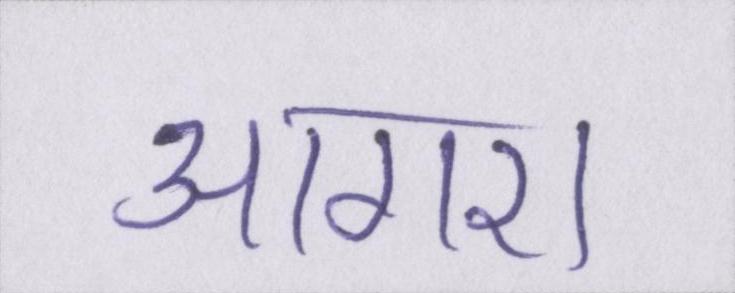 आगरा